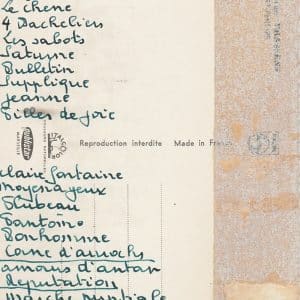 Le Chene
4 Bacheliers
Les sabots
Saturne
Bulletin
Supplique
Jeanne
Filles de joie
Reproduction interdite Made in
claire fontaine
moyenageux
Fantome
Bonhomme
Corne d'aurochs
amours d'antan
reputation
marche nuptiale